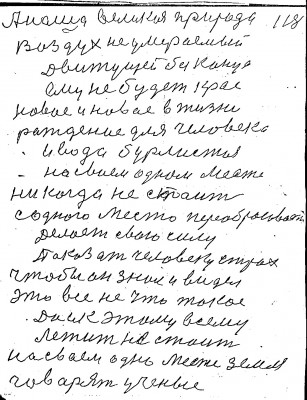 Анаша великая природа 118
воздух не умераемый
движущей би канца
ему не будет крае
новое и новое в жизни
раждение для человека
и вода бурлистая
на своем одном месте
никогда не стоит
с одного место перебрасывает
делает свою силу
показат человеку страх
чтобы он знал и видел
это все не что токое
Да и к этому всему
летит не стоит
на своем одно месте земля
говарят ученые